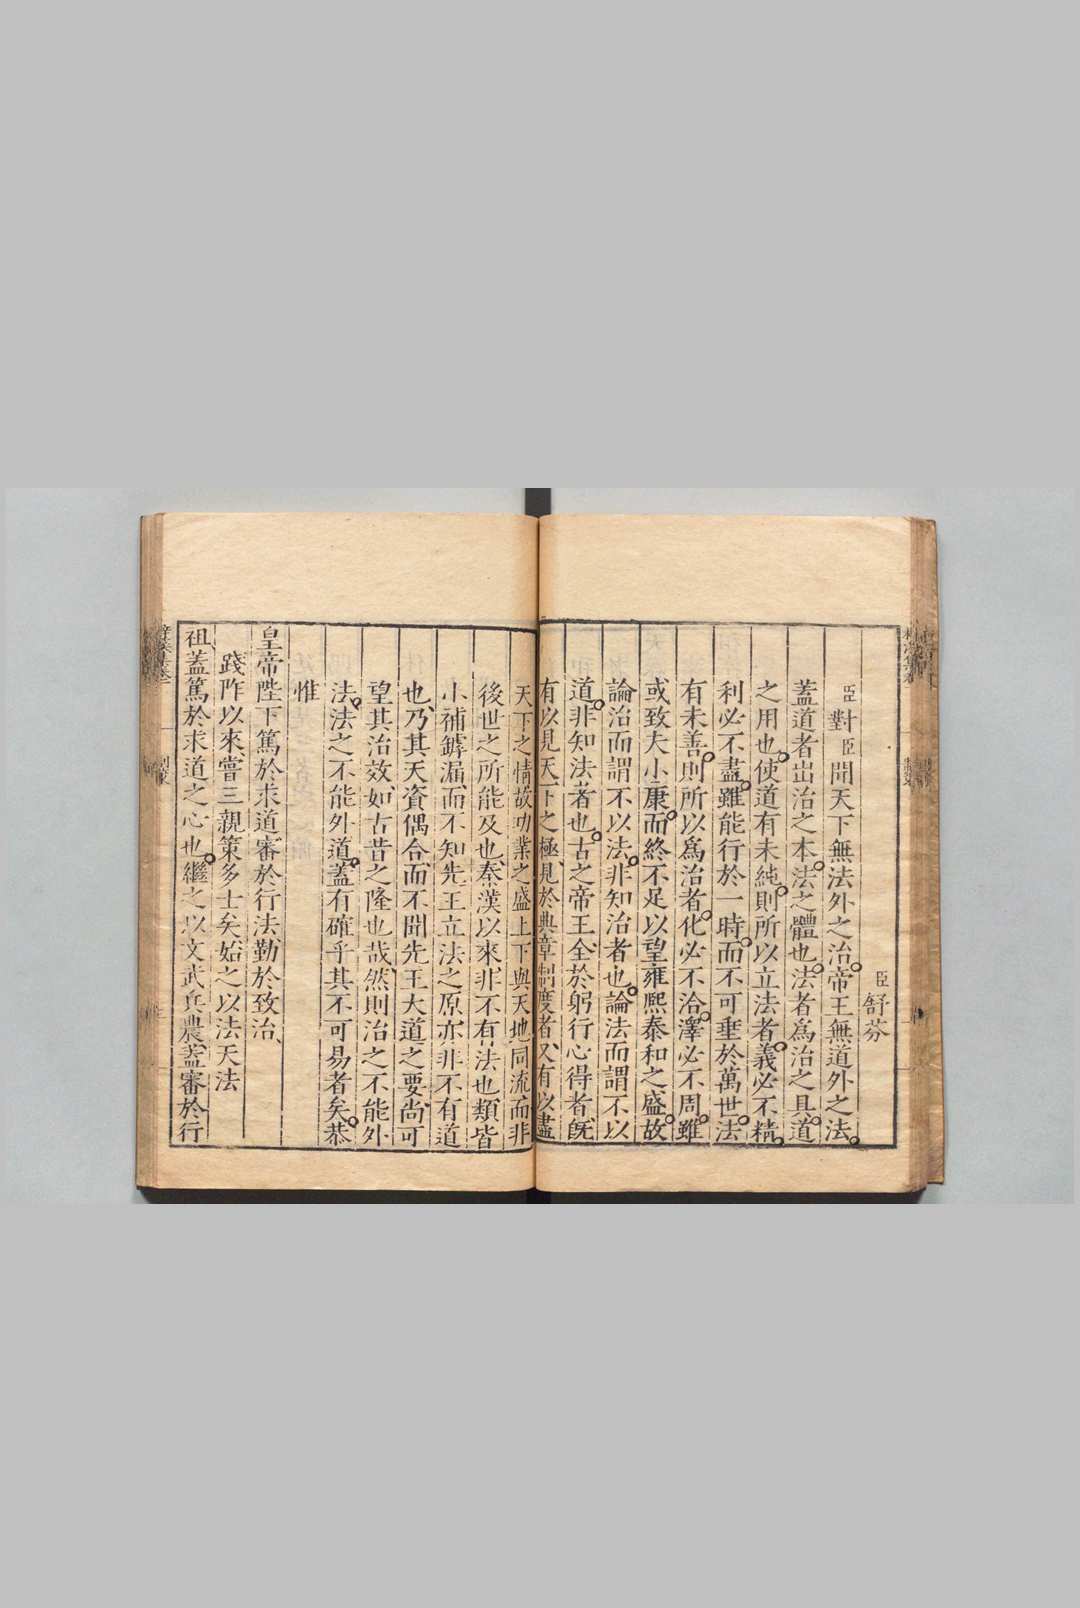 臣舒芬
臣對臣聞天下無法外之治帝王無道外之法
蓋道者出治之本法之體也法者爲治之具道
之用也使道有未純則所以立法者義必不精
利必不盡雖能行於一時而不可垂於萬世法
有未善則所以爲治者化必不洽澤必不周雖
或致夫小康而終不足以望雍熙泰和之盛故
論治而謂不以法非知治者也論法而謂不以
道非知法者也古之帝王全於躬行心得者旣
有以見天下之極見於典章制度者又有以盡
天下之情故功業之盛上下與天地同流而非
後世之所能及也秦漢以來非不有法也類皆
小補罅漏而不知先王立法之原亦非不有道
也乃其天資偶合而不聞先王大道之要尚可
望其治效如古昔之隆也哉然則治之不能外
法法之不能外道蓋有確乎其不可易者矣恭
惟
皇帝陛下篤於求道審於行法勤於致治
踐阼以來嘗三親策多士矣始之以法天法
祖蓋篤於求道之心也繼之以文武兵農蓋審於行